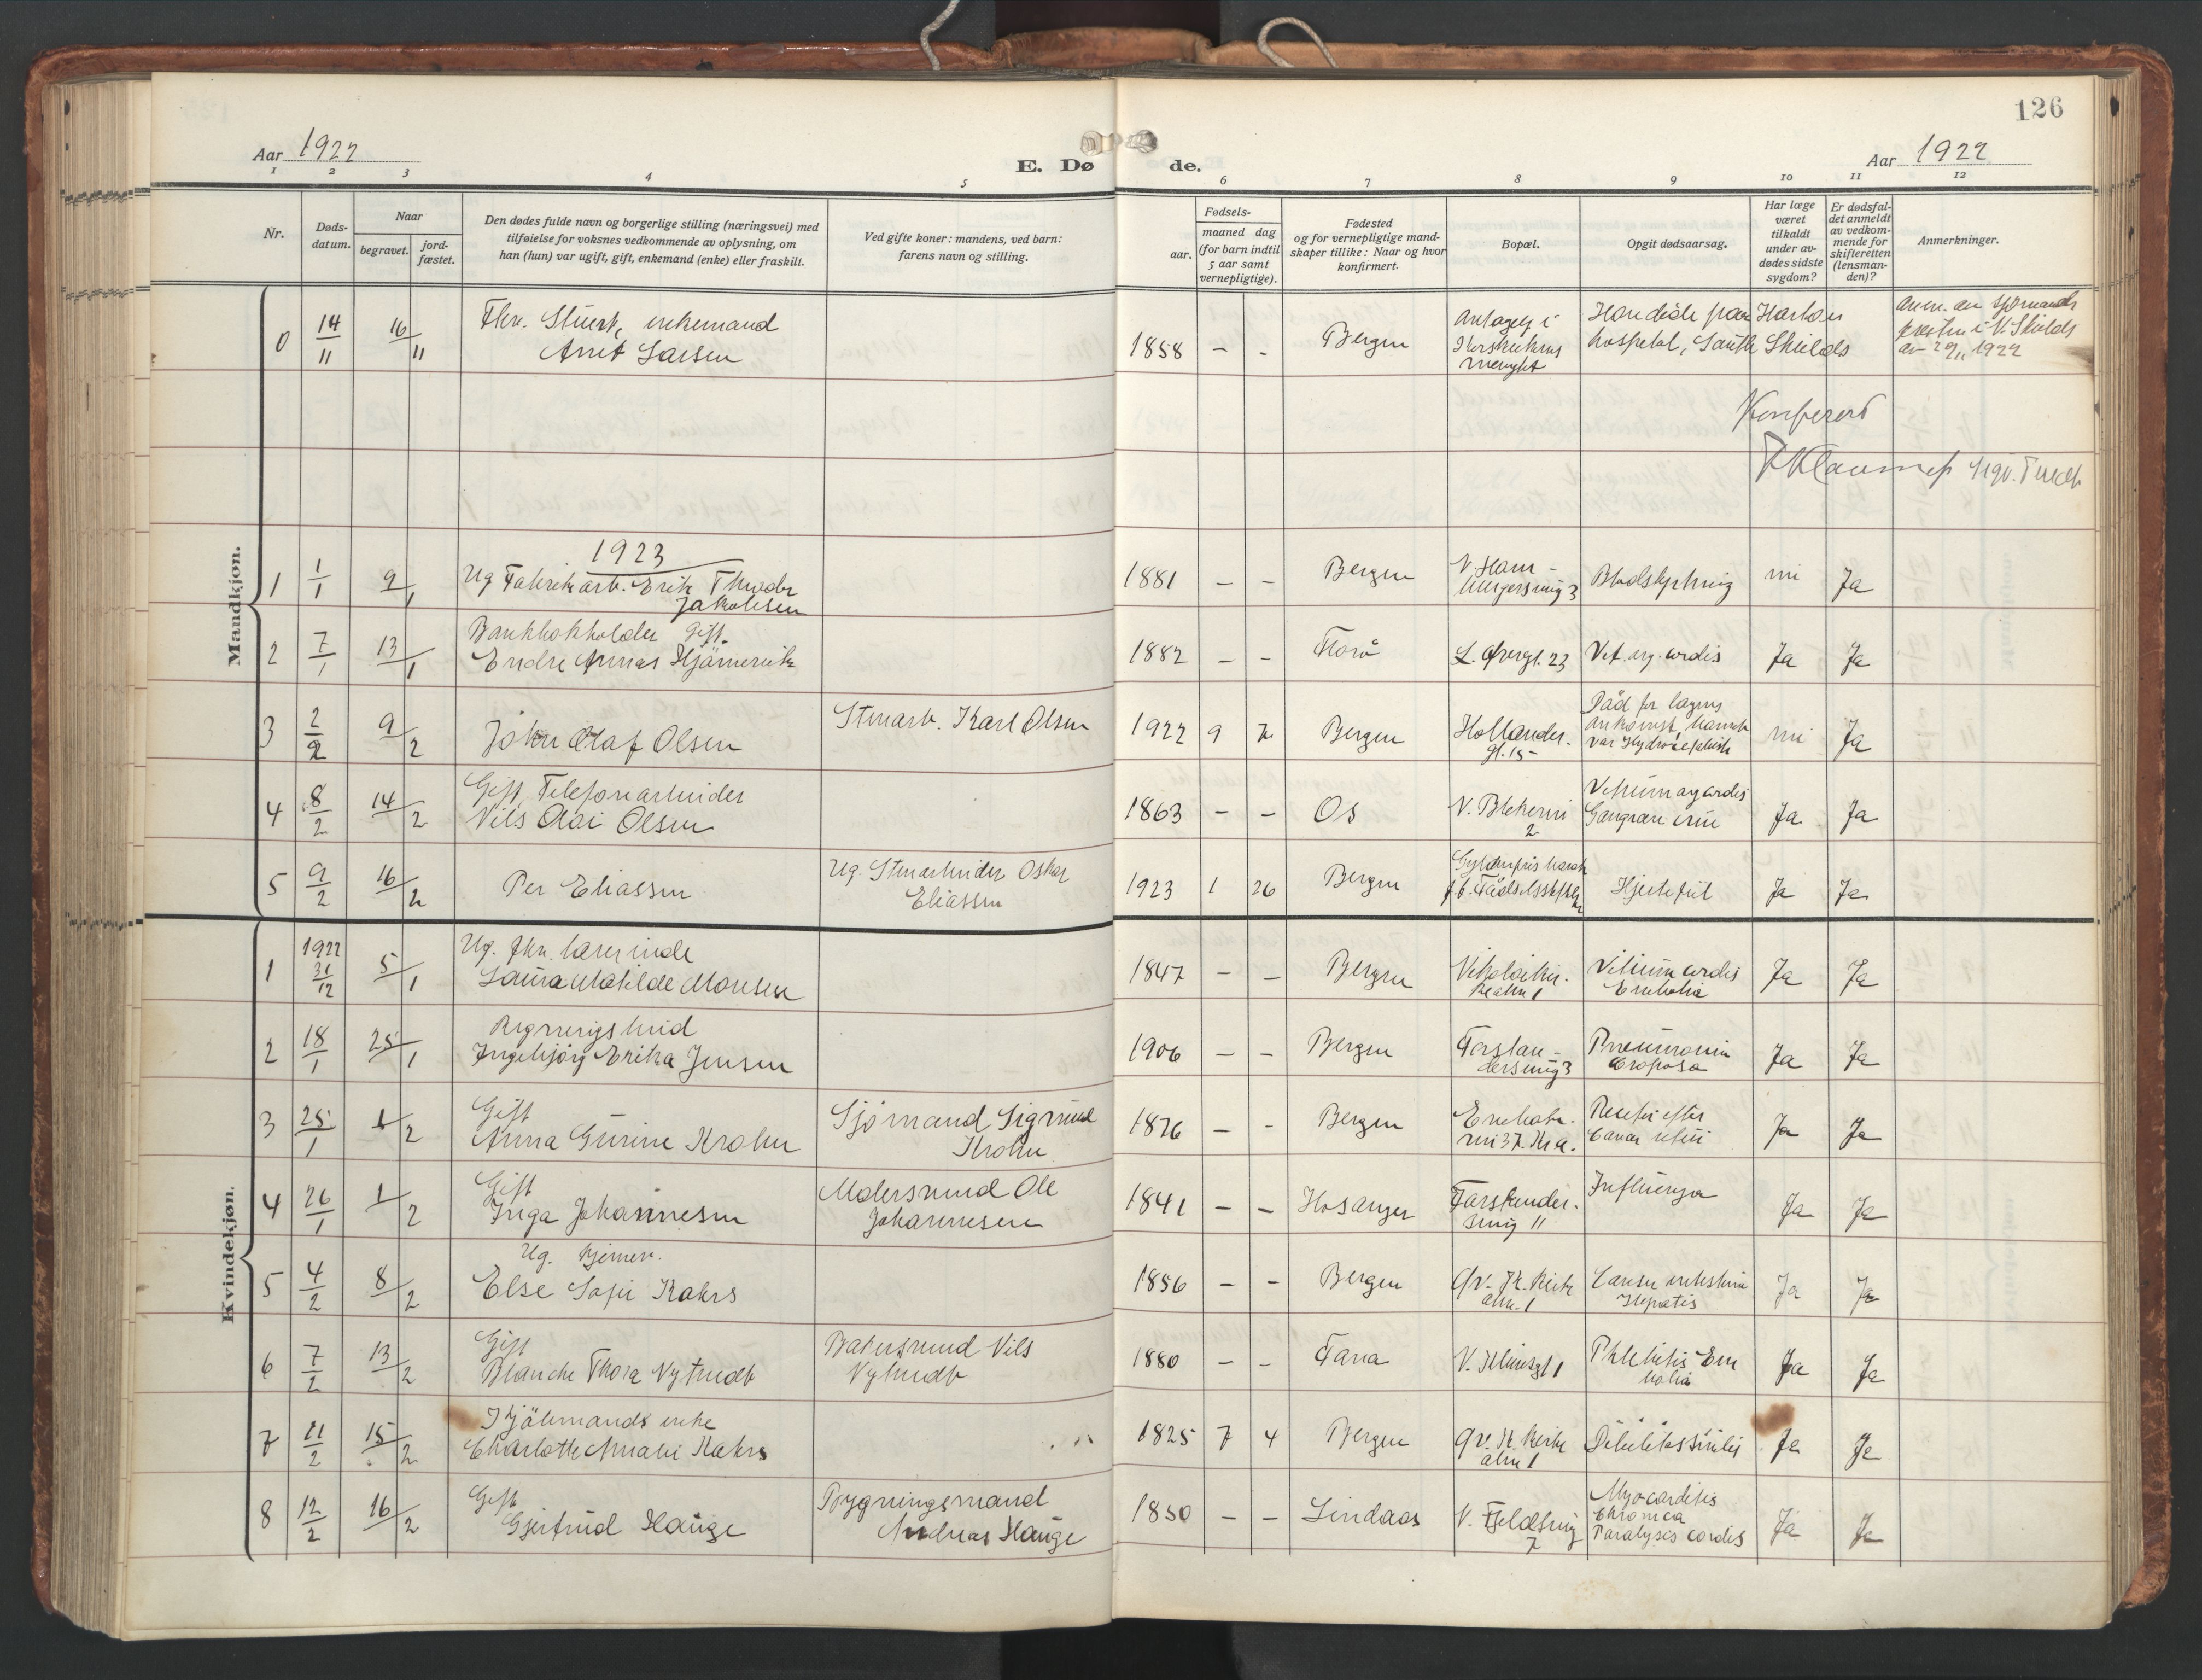 126
Aar 1922
E. Dø de.
Aar 1922
1 2 3 4 5 6 7 8 9 10 11 12
Nr.
Døds-
datum.
Naar
begravet.
jord-
fæstet.
Den dødes fulde navn og borgerlige stilling (næringsvei) med
tilføielse for voksnes vedkommende av oplysning, om
han (hun) var ugift, gift, enkemand (enke) eller fraskilt.
Ved gifte koner: mandens, ved barn:
farens navn og stilling.
Fødsels-
aar.
maaned dag
(for barn indtil
5 aar samt
vernepligtige).
Fødested
og for vernepligtige mand-
skaper tillike: Naar og hvor
konfirmert.
Bopæl.
Opgit dødsaarsag.
Har læge
været
tilkaldt
under av-
dødes sidste
sygdom?
Er dødsfal-
det anmeldt
av vedkom-
mende for
skifteretten
(lensman-
den)?
Anmerkninger.
Mandkjøn.
0 14/11 16/11 Fhv. enkemand
Arnt Larsen
1858 – – Bergen
Antagelig i
Korskirkens
menighet
Han døde paa Harbour
hospital, South Shields
Anm. av sjømands
presten i N. Shields
av 29/11 1922
Konferert
1923
1 1/1 9/1 Ug Fabrikarb. Erik Theodor
Jakobsen
1881 – – Bergen
Blodstyrtning nei Ja
2 7/1 13/1 Bankbokholder gift.
Endre Annas
1882 – – Florö L. Øvregt. 23 Vit. org. cordis Ja Ja
3 2/2 9/2 John Olaf Olsen
Stenarb. Karl Olsen
1922 9 7 Bergen Hollander-
gt. 15
Död før lægens
ankomst, barnet
var Hydrocephalisk
nei Ja
4 8/2 14/2 Gift Telefonarbeider
Nils Olai Olsen
1863 – – Os V. Blekevei
2
Vitium org cordis
Gangræn
Ja Ja
5 9/2 16/2 Per Eliassen
Ug. Stenarbeider Oskar
Eliassen
1923 1 26 Bergen
Hjertefeil Ja Ja
Kvindekjøn.
1 1922 31/12 5/1 Ug. fhv. lærerinde
Laura Matilde Monsen
1847 – – Bergen Nikolaikir-
kealm 1
Vitium cordis
Embolia
Ja Ja
2 18/1 25/1
Ingebjörg Erika Jensen
1906 – – Bergen Forstan-
dersmug 3
Pneumonia
Croposa
Ja Ja
3 25/1 1/2 Gift
Anna Gurine Krohn
Sjømand Sigmund
Krohn
1876 – – Bergen Enehau-
vei 37. Kra.
efter
Cancer uteri
Ja Ja
4 26/1 1/2 Gift
Inga Johannesen
Malersvend Ole
Johannesen
1841 – – Hosanger Forstander-
smug 11
Influenza
Ja Ja
5 4/2 8/2 Ug.
Else Sofie Kahrs
1856 – – Bergen Ny. K. Kirke
alm. 1
Cancer intestinin
Hepatis
Ja Ja
6 7/2 13/2 Gift
Blanche Thora Nytrudt
Bakersvend Nils
Nytrudt
1880 – – Fana
Phlebitis Em
bolia
Ja Ja
7 11/2 15/2 enke
Charlotte Amalie Kahrs
1825 7 4 Bergen Ny. K. Kirke
alm 1
Debilitas senilis
Ja Ja
8 12/2 16/2 Gift
Gjertrud Hauge
Bygningsmand
Andreas Hauge
1850 – – Lindaas V. Fjeldsmug
7
Myocarditis
Chronica
Paralyses cordis
Ja Ja